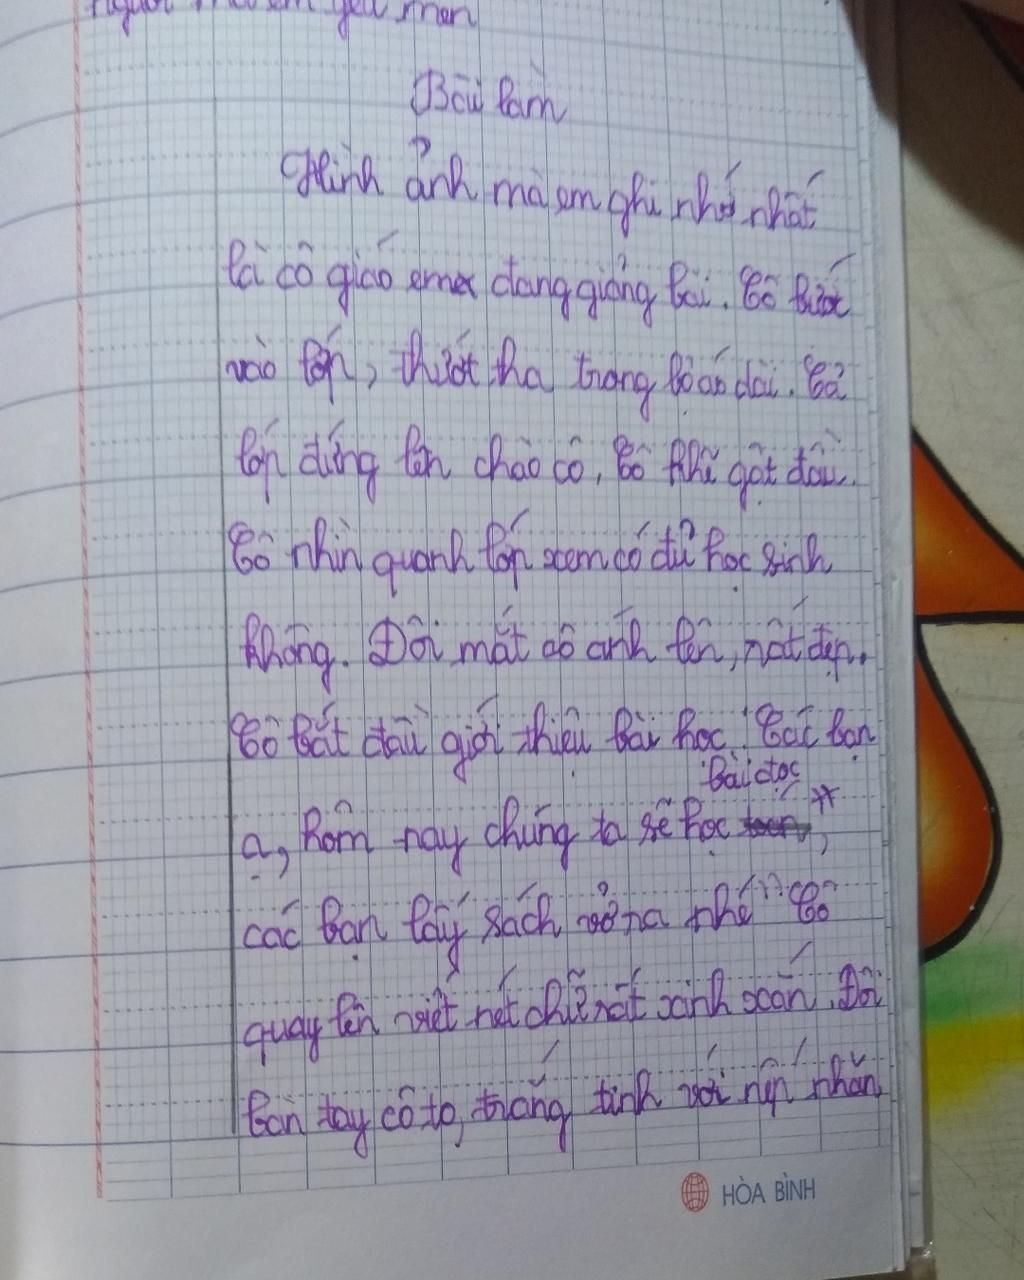 người mà em yêu mến
Bài làm
Hình ảnh mà em ghi nhớ nhất
là cô giáo em đang giảng bài. Cô bước
vào lớp, thướt tha trong bộ áo dài. Cả
lớp đứng lên chào cô, cô khẽ gật đầu.
Cô nhìn quanh lớp xem có đủ học sinh
không. Đôi mắt cô ánh lên, rất đẹp.
Cô bắt đầu giới thiệu bài học: "Các bạn
bài đọc
ạ, hôm nay chúng ta sẽ học toán,
các bạn lấy sách vở ra nhé" Cô
quay lên viết nét chữ rất xinh xắn. Đôi
bàn tay cô to, trắng tinh với nếp nhăn
HÒA BÌNH